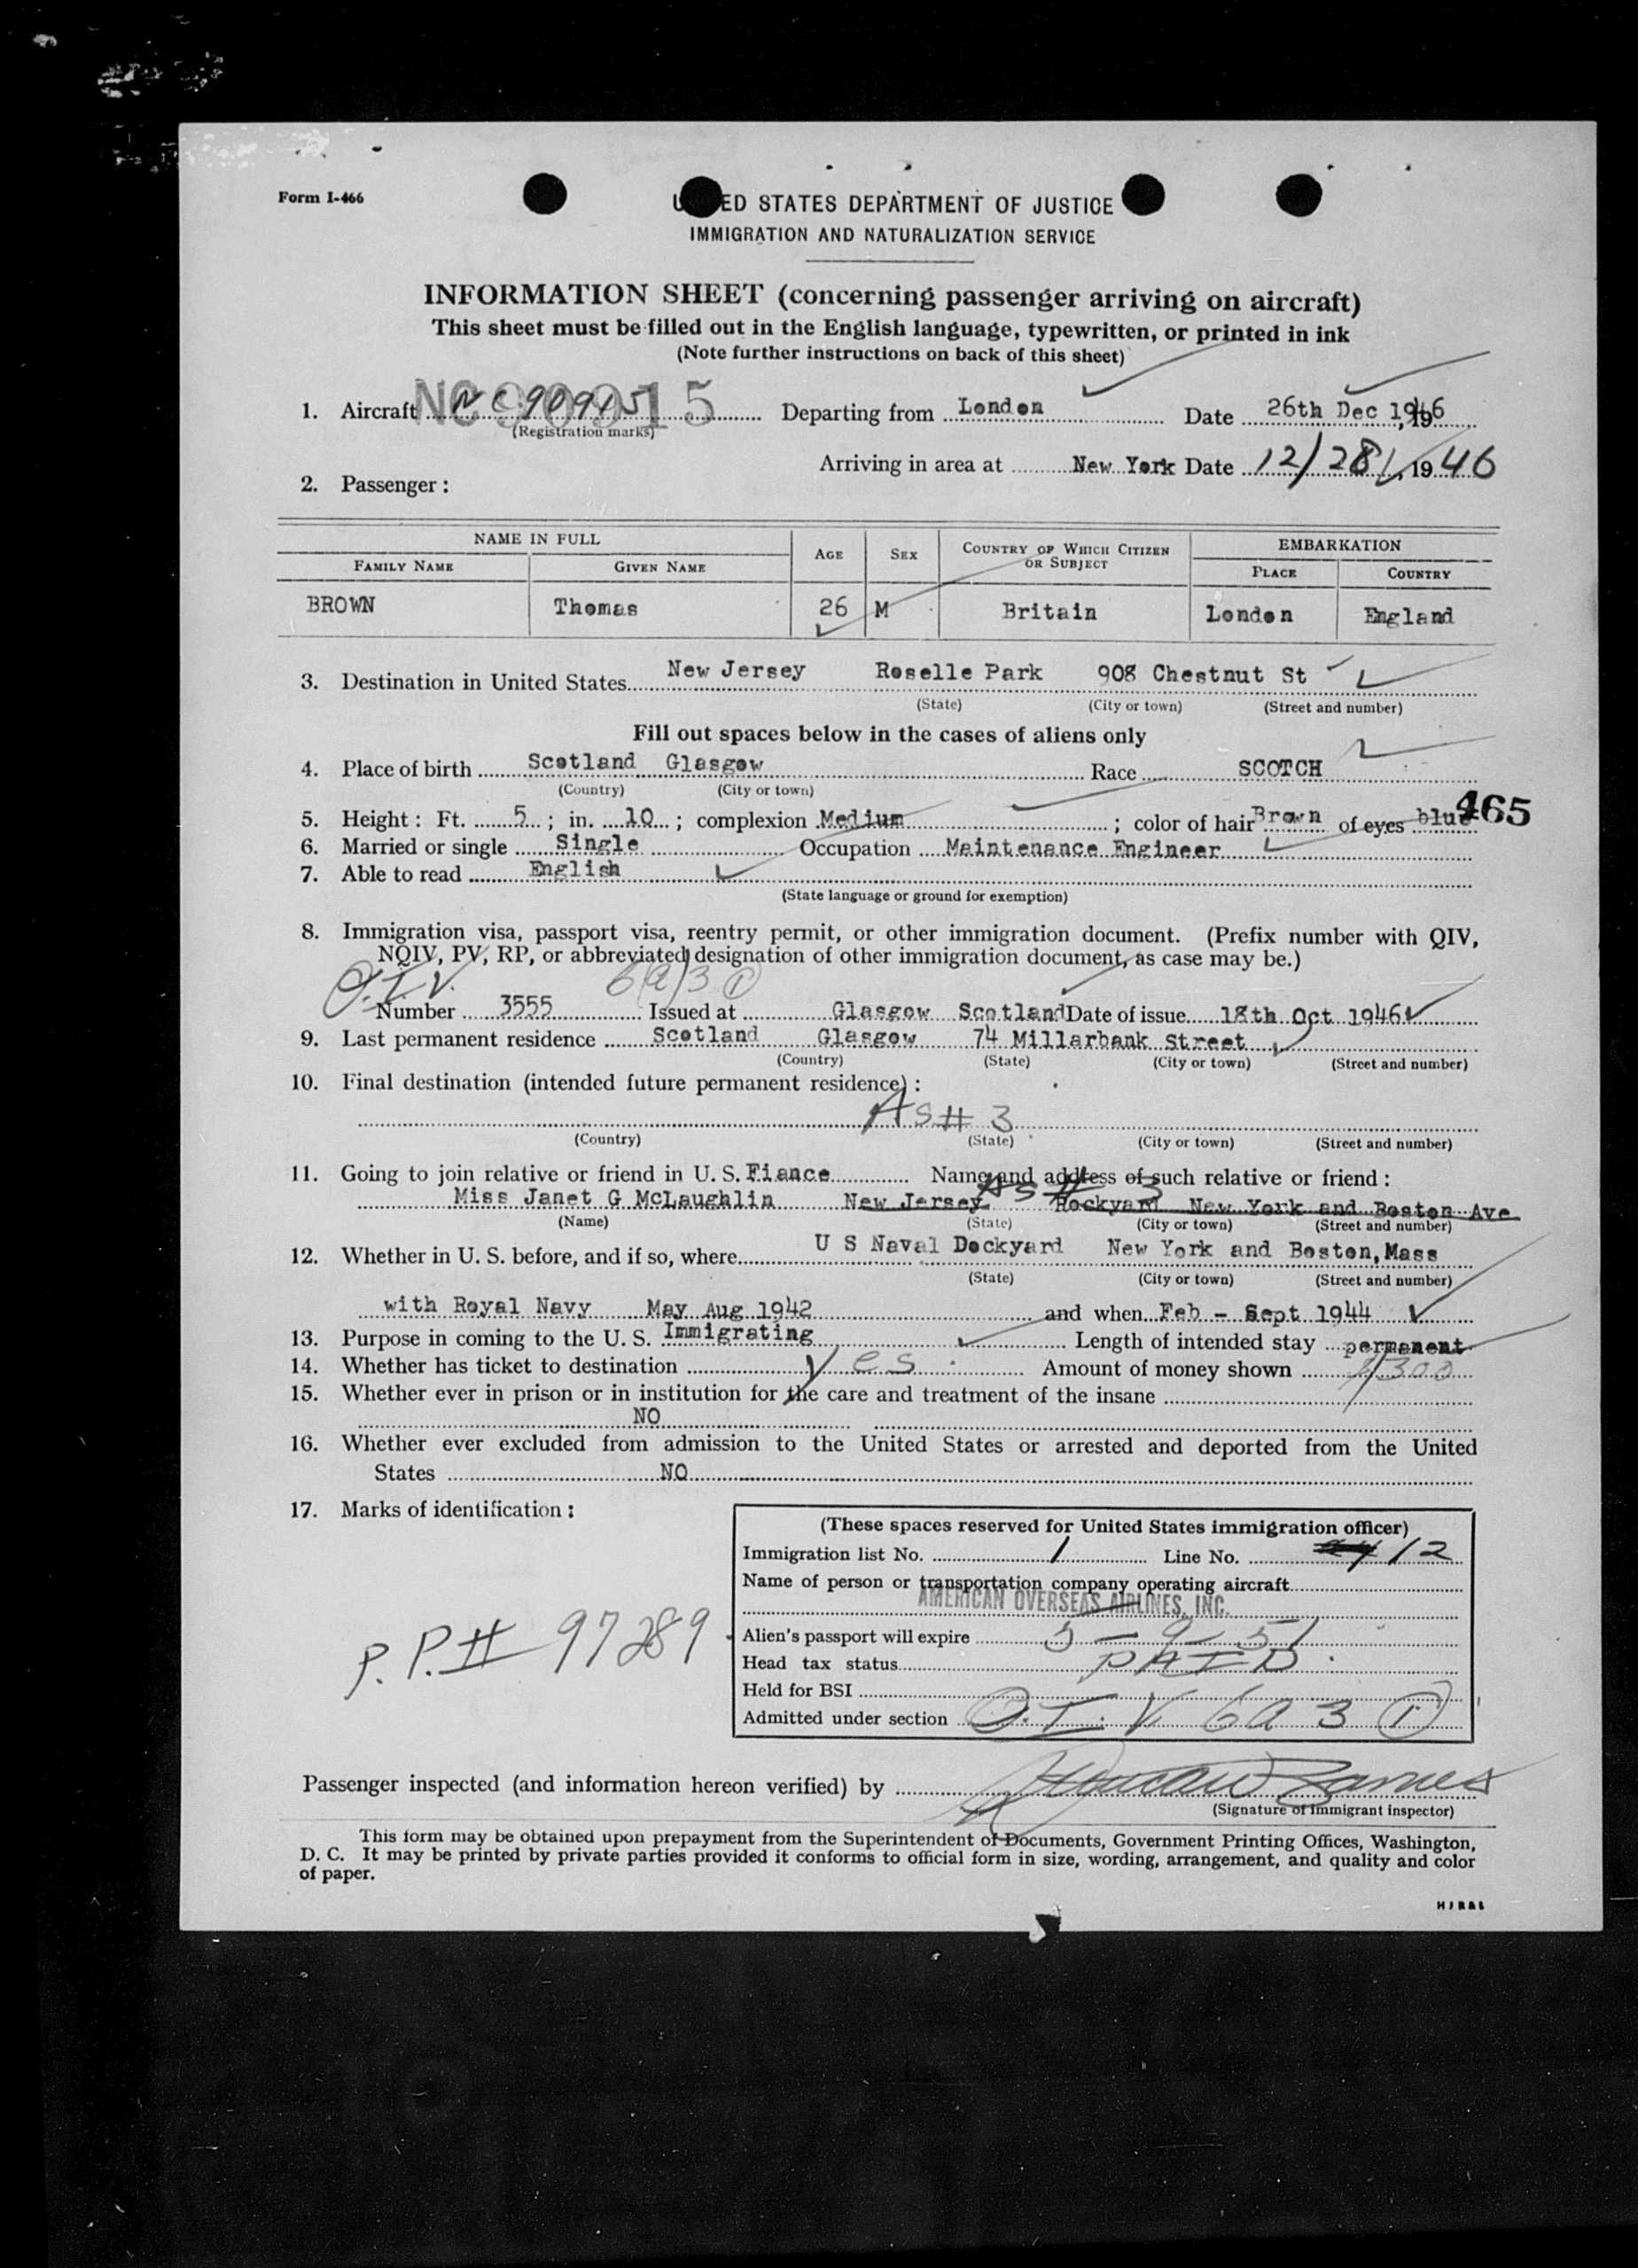 Form I-466
UNITED STATES DEPARTMENT OF JUSTICE
IMMIGRATION AND NATURALIZATION SERVICE
INFORMATION SHEET (concerning passenger arriving on aircraft)
This sheet must be filled out in the English language, typewritten, or printed in ink
(Note further instructions on back of this sheet)
NC90915
1. Aircraft NC90915 Departing from London Date 26th Dec 1946, 19
(Registration marks)
Arriving in area at New York Date 12/28/, 1946
2. Passenger:
NAME IN FULL AGE SEX COUNTRY OF WHICH CITIZEN OR SUBJECT EMBARKATION
FAMILY NAME GIVEN NAME PLACE COUNTRY
BROWN Thomas 26 M Britain London England
3. Destination in United States New Jersey Roselle Park 908 Chestnut St
(State) (City or town) (Street and number)
Fill out spaces below in the cases of aliens only
4. Place of birth Scotland Glasgow Race SCOTCH
(Country) (City or town)
5. Height: Ft. 5; in. 10; complexion Medium; color of hair Brown of eyes blue 465
6. Married or single Single Occupation Maintenance Engineer
7. Able to read English
(State language or ground for exemption)
8. Immigration visa, passport visa, reentry permit, or other immigration document. (Prefix number with QIV,
NQIV, PV, RP, or abbreviated designation of other immigration document, as case may be.)
Q.I.V. 6a3 (1)
Number 3555 Issued at Glasgow Scotland Date of issue 18th Oct 1946
9. Last permanent residence Scotland Glasgow 74 Millarbank Street
(Country) (State) (City or town) (Street and number)
10. Final destination (intended future permanent residence):
AS # 3
(Country) (State) (City or town) (Street and number)
11. Going to join relative or friend in U. S. Fiance Name and address of such relative or friend:
AS # 3
Miss Janet G McLaughlin New Jersey Rockyard New York and Boston Ave
(Name) (State) (City or town) (Street and number)
12. Whether in U. S. before, and if so, where U S Naval Dockyard New York and Boston, Mass
(State) (City or town) (Street and number)
with Royal Navy May Aug 1942 and when Feb - Sept 1944
13. Purpose in coming to the U. S. Immigrating Length of intended stay permanent
14. Whether has ticket to destination yes Amount of money shown $300
15. Whether ever in prison or in institution for the care and treatment of the insane
NO
16. Whether ever excluded from admission to the United States or arrested and deported from the United
States NO
17. Marks of identification:
P.P.# 97289
(These spaces reserved for United States immigration officer)
Immigration list No. 1 Line No. 12
Name of person or transportation company operating aircraft
AMERICAN OVERSEAS AIRLINES, INC.
Alien's passport will expire 5-9-51
Head tax status PAID
Held for BSI
Admitted under section Q.I.V 6a 3 (1)
Passenger inspected (and information hereon verified) by
(Signature of Immigrant inspector)
This form may be obtained upon prepayment from the Superintendent of Documents, Government Printing Offices, Washington,
D. C. It may be printed by private parties provided it conforms to official form in size, wording, arrangement, and quality and color
of paper.